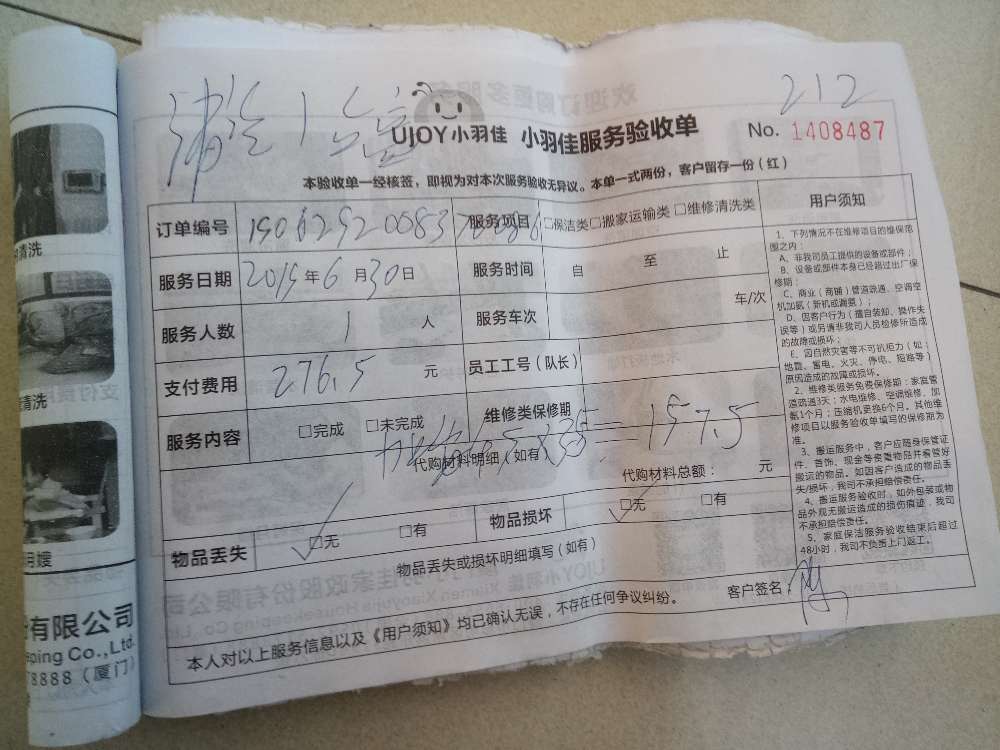 212
UJOY小羽佳 小羽佳服务验收单 No. 1408487
本验收单一经核签，即视为对本次服务验收无异议。本单一式两份，客户留存一份（红）
订单编号 服务项目 □保洁类□搬家运输类 □维修清洗类
服务日期 2019年6月30日 服务时间 自 至 止
服务人数 1 人 服务车次 车/次
支付费用 276.5 元 员工工号（队长）
服务内容 □完成 □未完成 维修类保修期
代购材料明细（如有） = 157.5
代购材料总额： 元
物品丢失 □无 □有 物品损坏 □无 □有
物品丢失或损坏明细填写（如有）
本人对以上服务信息以及《用户须知》均已确认无误，不存在任何争议纠纷。 客户签名：
用户须知
1、下列情况不在维修项目的维保范
围之内：
A、非我司员工提供的设备或部件；
B、设备或部件本身已经超过出厂保
修期；
C、商业（商铺）管道疏通、空调空
机加氨（新机或漏氨）；
D、因客户行为（擅自装卸、操作失
误等）或另请非我司人员检修所造成
的故障或损坏；
E、因自然灾害等不可抗拒力（如：
地震、雷电、火灾、停电、短路等）
原因造成的故障或损坏。
2、维修类服务免费保修期：家庭管
道疏通3天；水电维修、空调维修、加
氨1个月；压缩机更换6个月。其他维
修项目以服务验收单填写的保修期为
准。
3、搬运服务中，客户应随身保管证
件、首饰、现金等贵重物品并看管好
搬运的物品。如因客户造成的物品丢
失/损坏，我司不承担赔偿责任。
4、搬运服务验收时，如外包装或物
品外观无搬运造成的损伤痕迹，我司
不承担赔偿责任。
5、家庭保洁服务验收结束后超过
48小时，我司不负责上门返工。
清洗
清洗
月嫂
有限公司
ping Co.,Ltd.
8888（厦门）